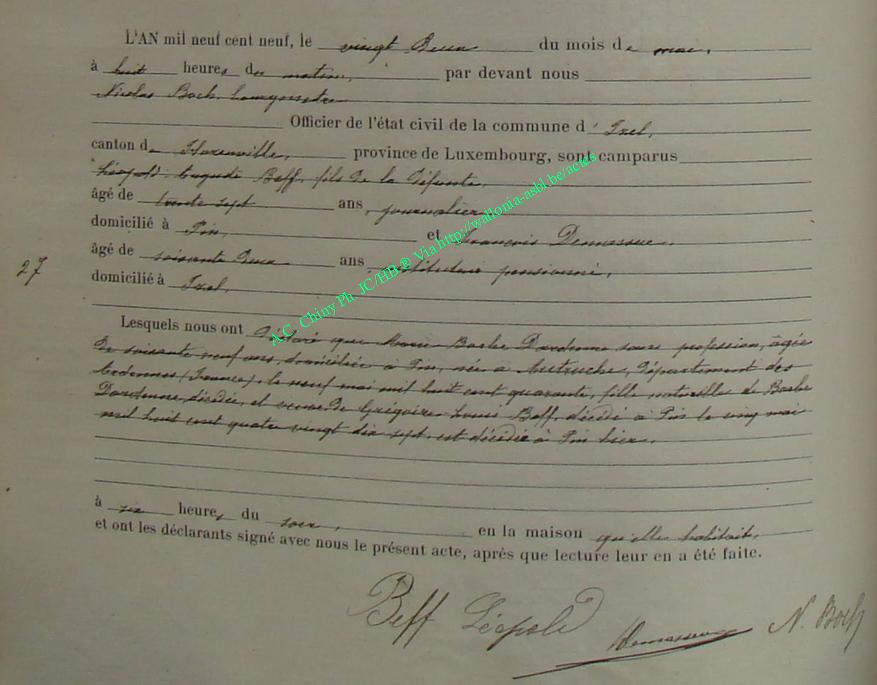 L'AN mil neuf cent neuf, le vingt Deux du mois de mai,
à huit heures du matin, par devant nous
Nicolas Boch, bourgmestre
Officier de l'état civil de la commune d'Izel,
canton de Florenville, province de Luxembourg, sont comparus
Léopold Auguste Beff, fils de la défunte,
âgé de trente sept ans, journalier,
domicilié à Pin, et François Demasseue
âgé de soixante Deux ans, instituteur pensionné,
domicilié à Izel,
27
Lesquels nous ont Déclaré que Marie Barbe Dardenne sans profession, âgée
de soixante neuf ans, domiciliée à Pin, née à Autruche, Département des
Ardennes (France), le neuf mai mil huit cent quarante, fille naturelle de Barbe
Dardenne, décédée, et veuve de Grégoire Louis Beff, décédé à Pin le cinq mai
mil huit cent quatre vingt dix sept, est décédée à Pin hier,
à six heures du soir, en la maison qu'elle habitait,
et ont les déclarants signé avec nous le présent acte, après que lecture leur en a été faite.
Beff Léopold N. Boch
A.C. Chiny Ph JC/HB ® Via http://wallonia-asbl.be/actes